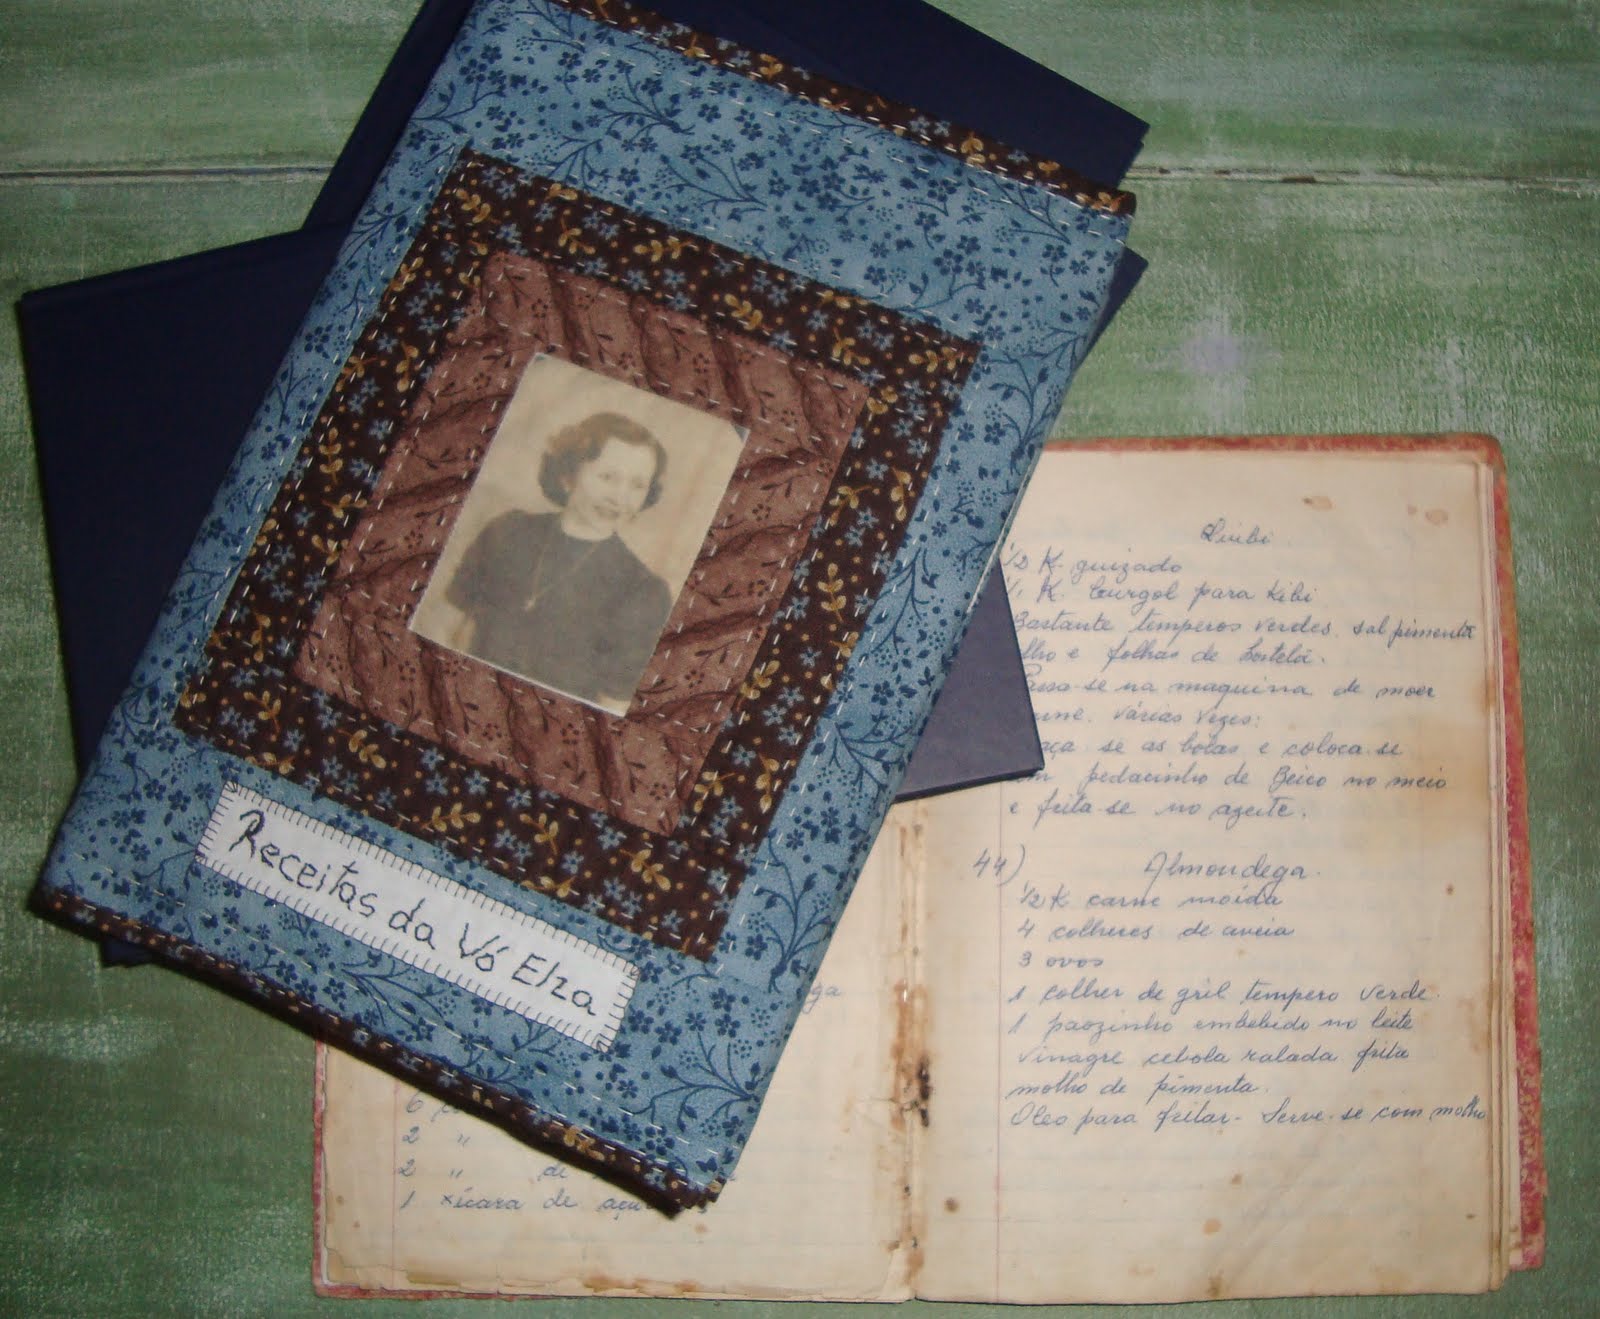 Receitas da Vó Elza
Quibi
1/2 K. guizado
K. burgol para Kibi
Bastante temperos verdes. sal pimenta
alho e folhas de hortelã.
Passa-se na maquina de moer
varias vezes:
se as bolas e coloca-se
pedacinho de Beico no meio
e frita-se no azeite.
44) Almondega.
1/2 K carne moída
4 colheres de aveia
3 ovos
1 colher de tempero verde.
1 paozinho embebido no leite
vinagre cebola ralada frita
molho de pimenta.
Oleo para fritar - Serve-se com molho
6
2 "
2 " de
1 xícara de